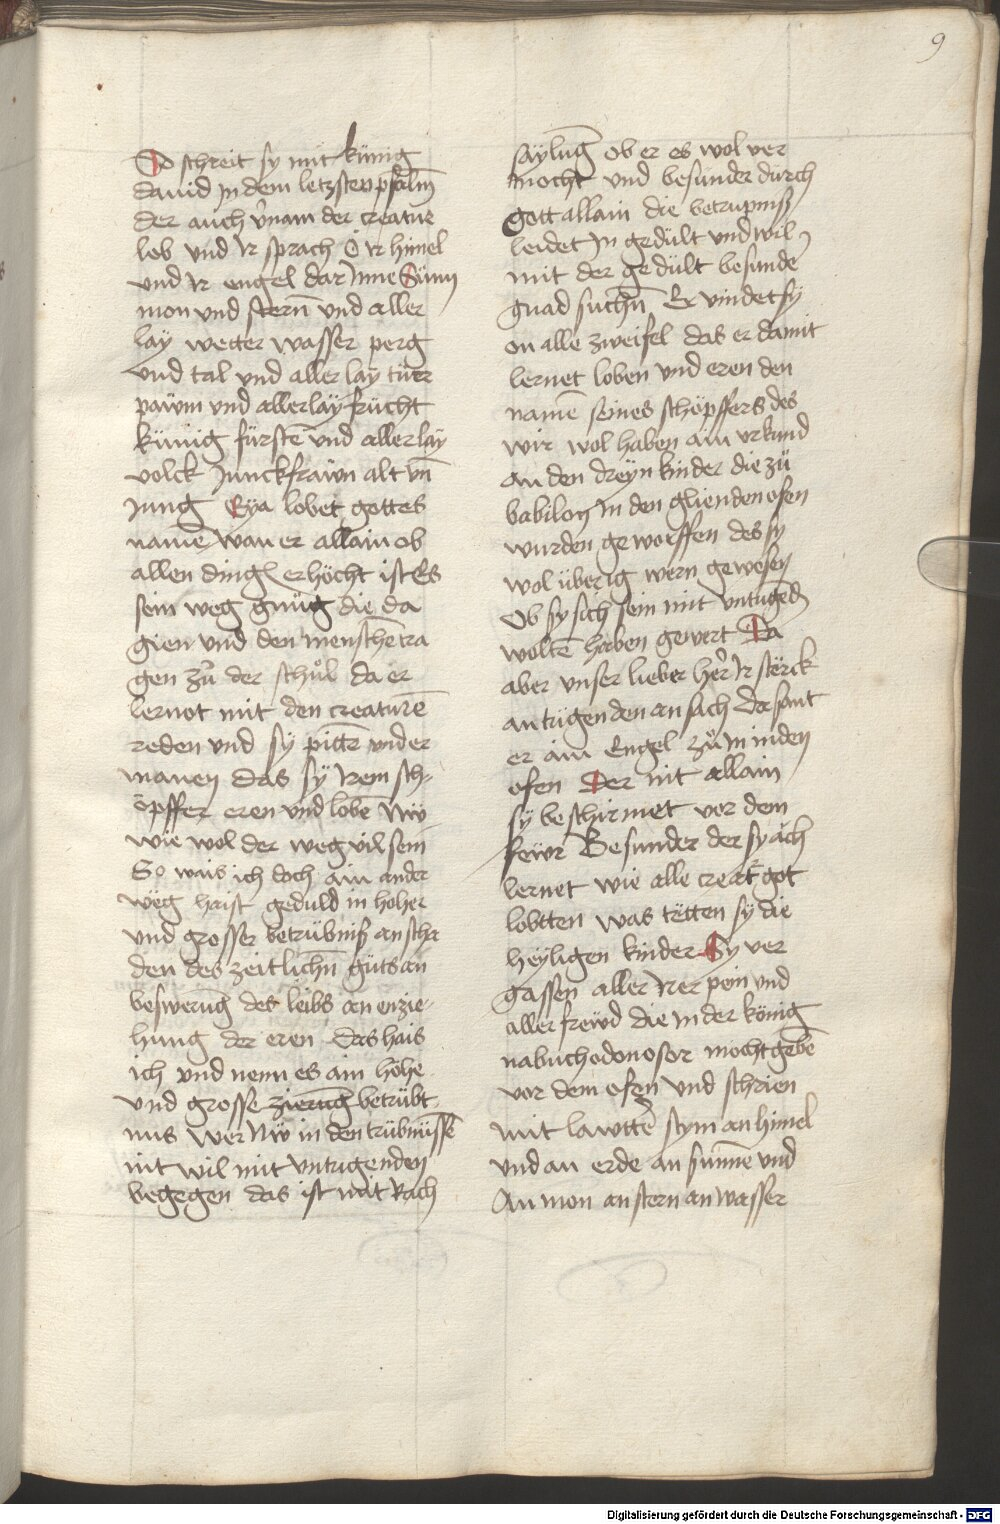 9
Do schreit sy mit künig
dauid in dem letzsten psalm̄
der auch v̄nam der creatur
lob und ir sprach O ir himel
und ir engel dar Inne Sünn
mon und stern̄ und aller
lay wetter wasser perg
und tal und aller lay tier
päwm und allerläy frücht
künig fürstē und allerläy
volck Junckfräwn alt vn̄
Jung Eya lobet gottes
namē wan er allain ob
allen ding erhöcht ist Es
sein weg gnüg die da
gien und den menschē tra
gen zů der schůl da er
lernot mit den creaturē
reden und sy pittē under
manen das sÿ irem sch-
öpffer eren und lobē Nw
wie wol der weg vil sein
So wais ich doch ain ander
weg haist geduld in hoher
und grosser betrübniß an scha
den des zeitlichn̄ güts an
beswerūg des leibs an enzie-
hung der eren das hais
ich und nenn es ain hohe
und grosse zierūg betrübt
nus wer Nw in den trübnüssē
nit wil mit untugenden
begegen das ist mit Rach
säylūg ob er es wol ver
mocht und besunder durch
gott allain die betrupniß
leidet in gedült und wil
mit der gedült besunde
gnad suchn̄ Er vindet sy
on alle zweifel das er damit
lernet loben und eren den
namē seines schöpffers des
wir wol haben ain urkund
an den dreyn kinder die zü
babilon in den glienden ofen
wurden geworffen des sy
wol überig wern gewesen
Ob sy sich sein mit untugēd
woltē haben gewert Da
aber unser lieber her̄ ir sterck
an tugenden an sach da sant
er ain Engel zů in in den
ofen Der nit allain
sÿ beschirmet vor dem
fewr Besunder der sy ach
lernet wie alle creat̄ got
lobtten was tetten sÿ die
heÿligen kinder Sy ver
gassen aller irer pein und
aller frewd die in der könig
nabuchodonosor mocht gebē
vor dem ofen und schrien
mit lawttē stym an himel
und an erde an sunnē und
An mon an stern an wasser
Digitalisierung gefördert durch die Deutsche Forschungsgemeinschaft - DFG